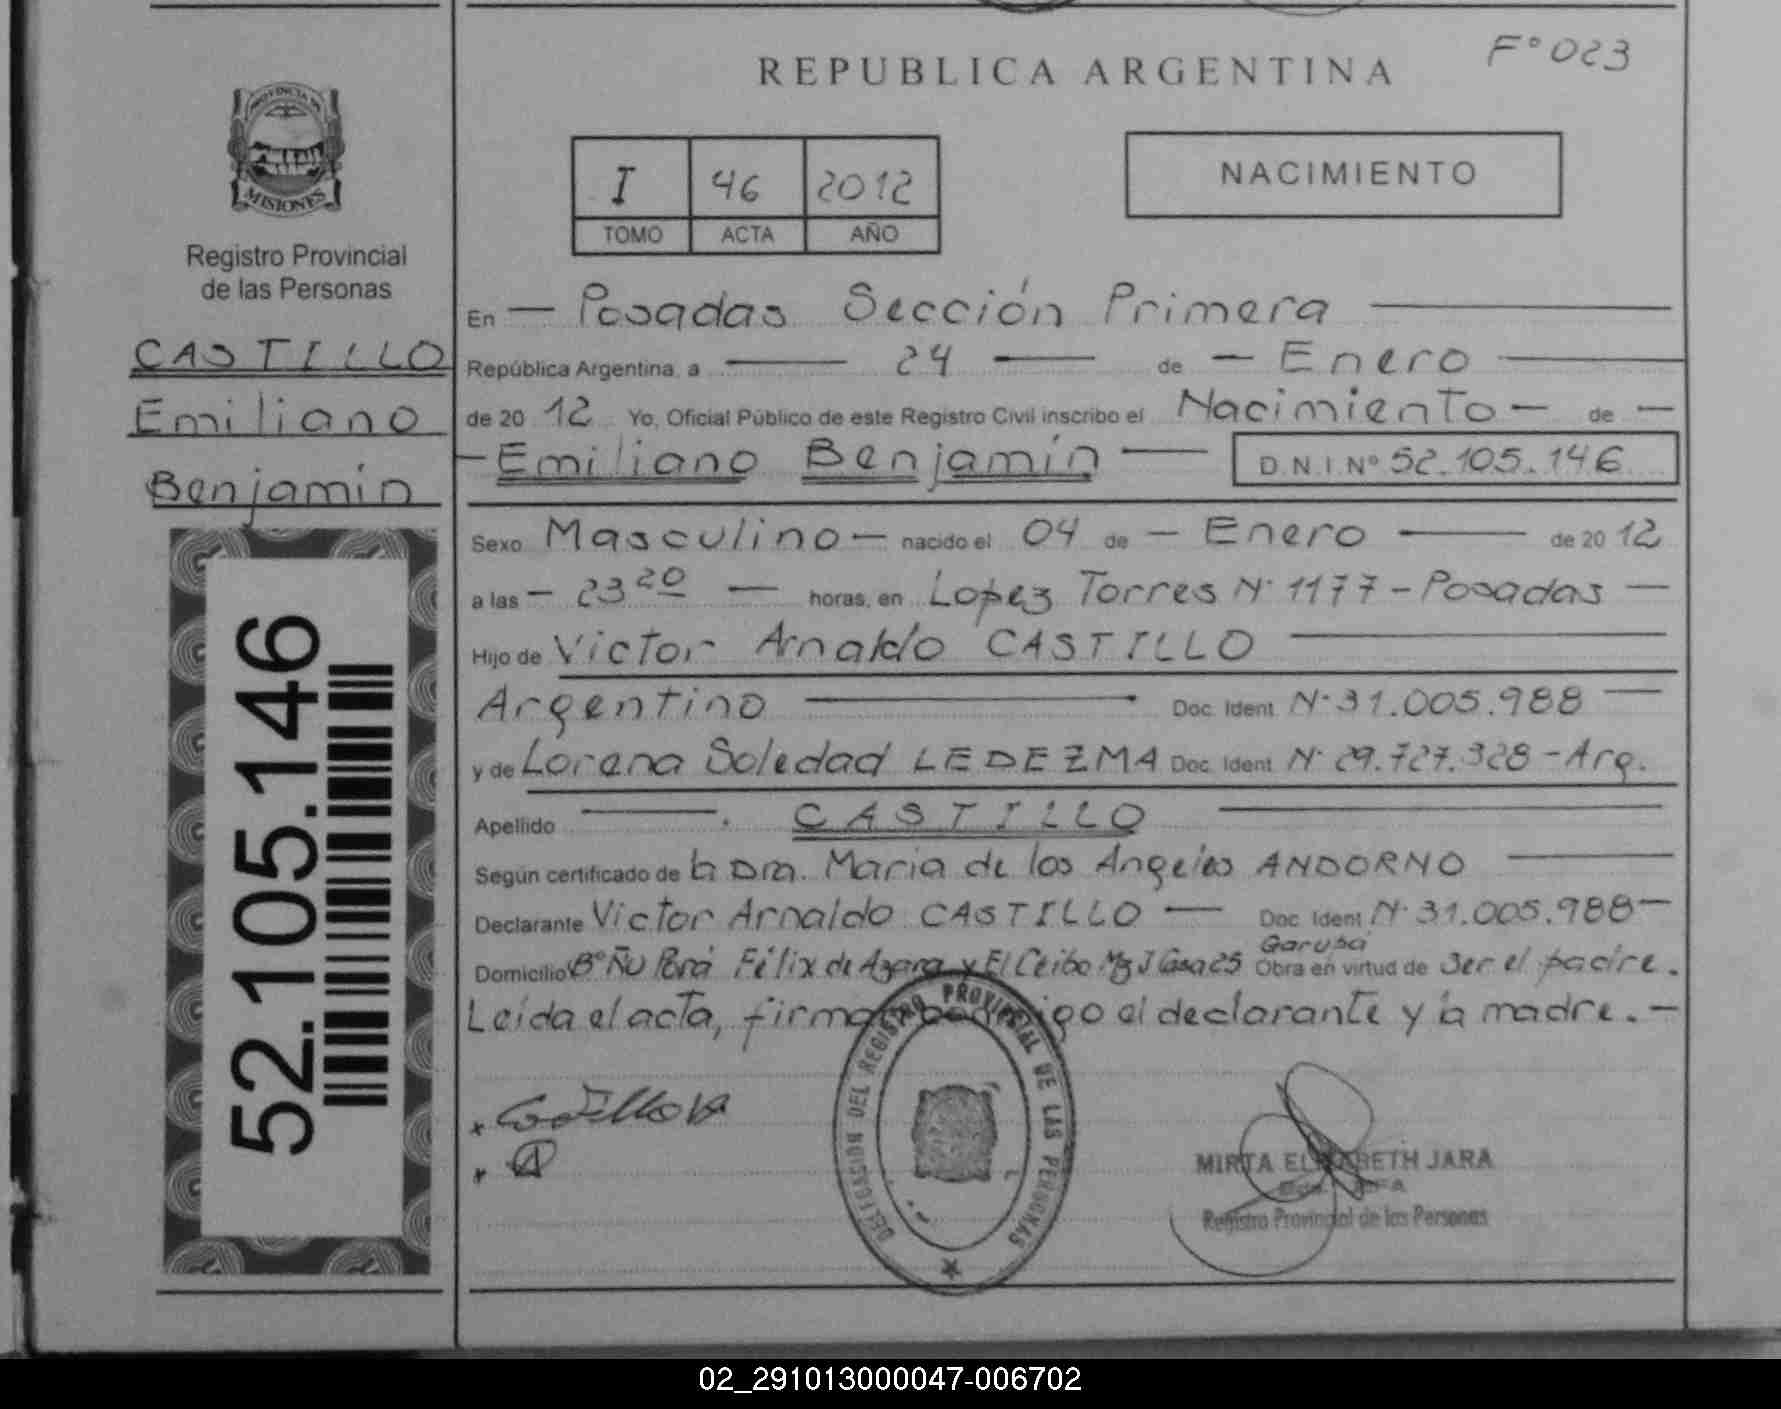 REPUBLICA ARGENTINA
F° 023
PROVINCIA DE
MISIONES
Registro Provincial
de las Personas
CASTILLO
Emiliano
Benjamín
52.105.146
I 46 2012
TOMO ACTA AÑO
NACIMIENTO
En — Posadas Sección Primera —
República Argentina, a — 24 — de — Enero —
de 20 12 Yo, Oficial Público de este Registro Civil inscribo el Nacimiento — de —
— Emiliano Benjamín — D.N.I.N° 52.105.146
Sexo Masculino — nacido el 04 de — Enero — de 20 12
a las — 23 20 — horas, en Lopez Torres N° 1177 - Posadas —
Hijo de Victor Arnaldo CASTILLO —
Argentino — Doc. Ident. N° 31.005.988 —
y de Lorena Soledad LEDEZMA Doc. Ident. N° 29.727.328 - Arg.
Apellido —. CASTILLO —
Según certificado de la Dra. Maria de los Angeles ANDORNO —
Declarante Victor Arnaldo CASTILLO — Doc. Ident. N° 31.005.988 —
Garupá
Domicilio B° Ñu Porá Félix de Azara y El Ceibo Mz J Casa 25 Obra en virtud de ser el padre.
Leída el acta, firman conmigo el declarante y la madre. —
DELEGACION DEL REGISTRO PROVINCIAL DE LAS PERSONAS
MIRTA ELIZABETH JARA
Registro Provincial de las Personas
02_291013000047-006702